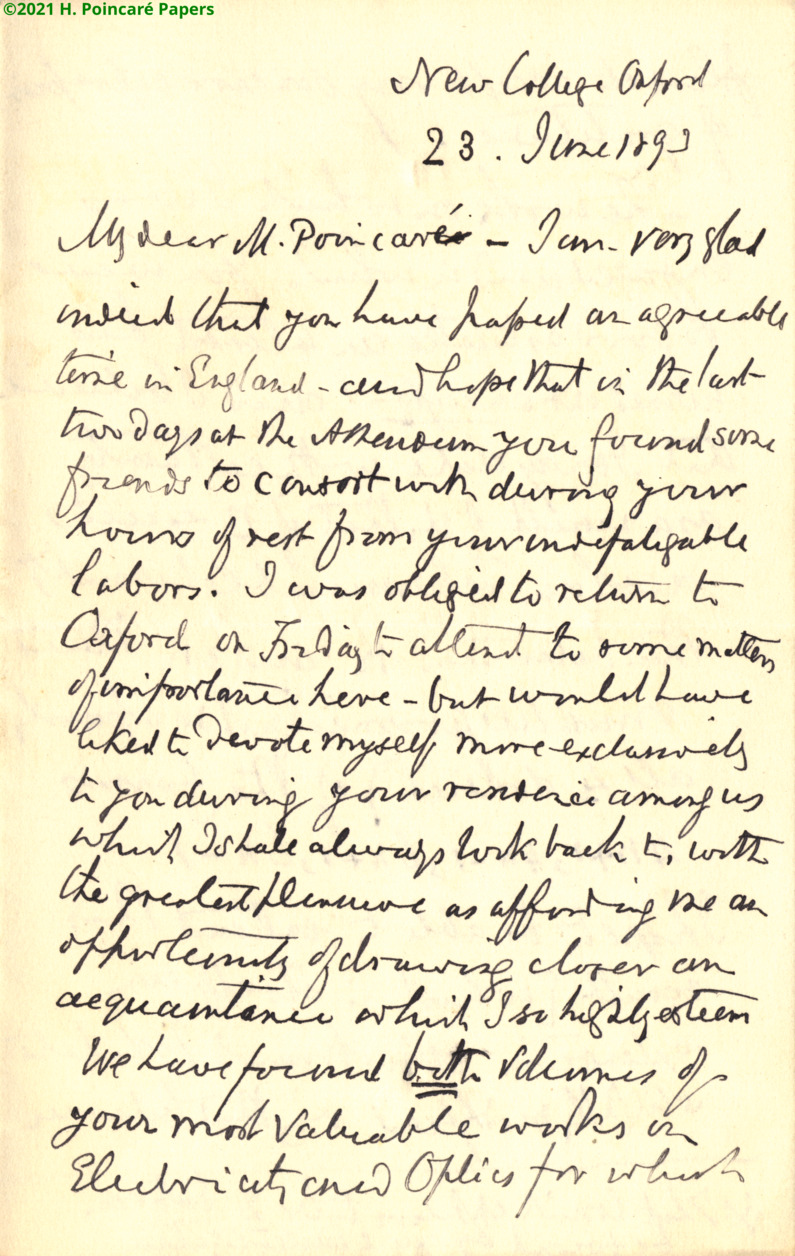 ©2021 H. Poincaré Papers
New College Oxford
23. June 1893
My dear M. Poincaré – I am very glad
indeed that you have passed an agreeable
time in England – and hope that in the last
two days at the Athenaeum you found some
friends to consort with during your
hours of rest from your indefatigable
labors. I was obliged to return to
Oxford on Friday to attend to some matters
of importance here – but would have
liked to devote myself more exclusively
to you during your residence among us
which I shall always look back to, with
the greatest pleasure as affording me an
opportunity of drawing closer an
acquaintance which I so highly esteem
We have found both volumes of
your most valuable works on
Electricity and Optics for which